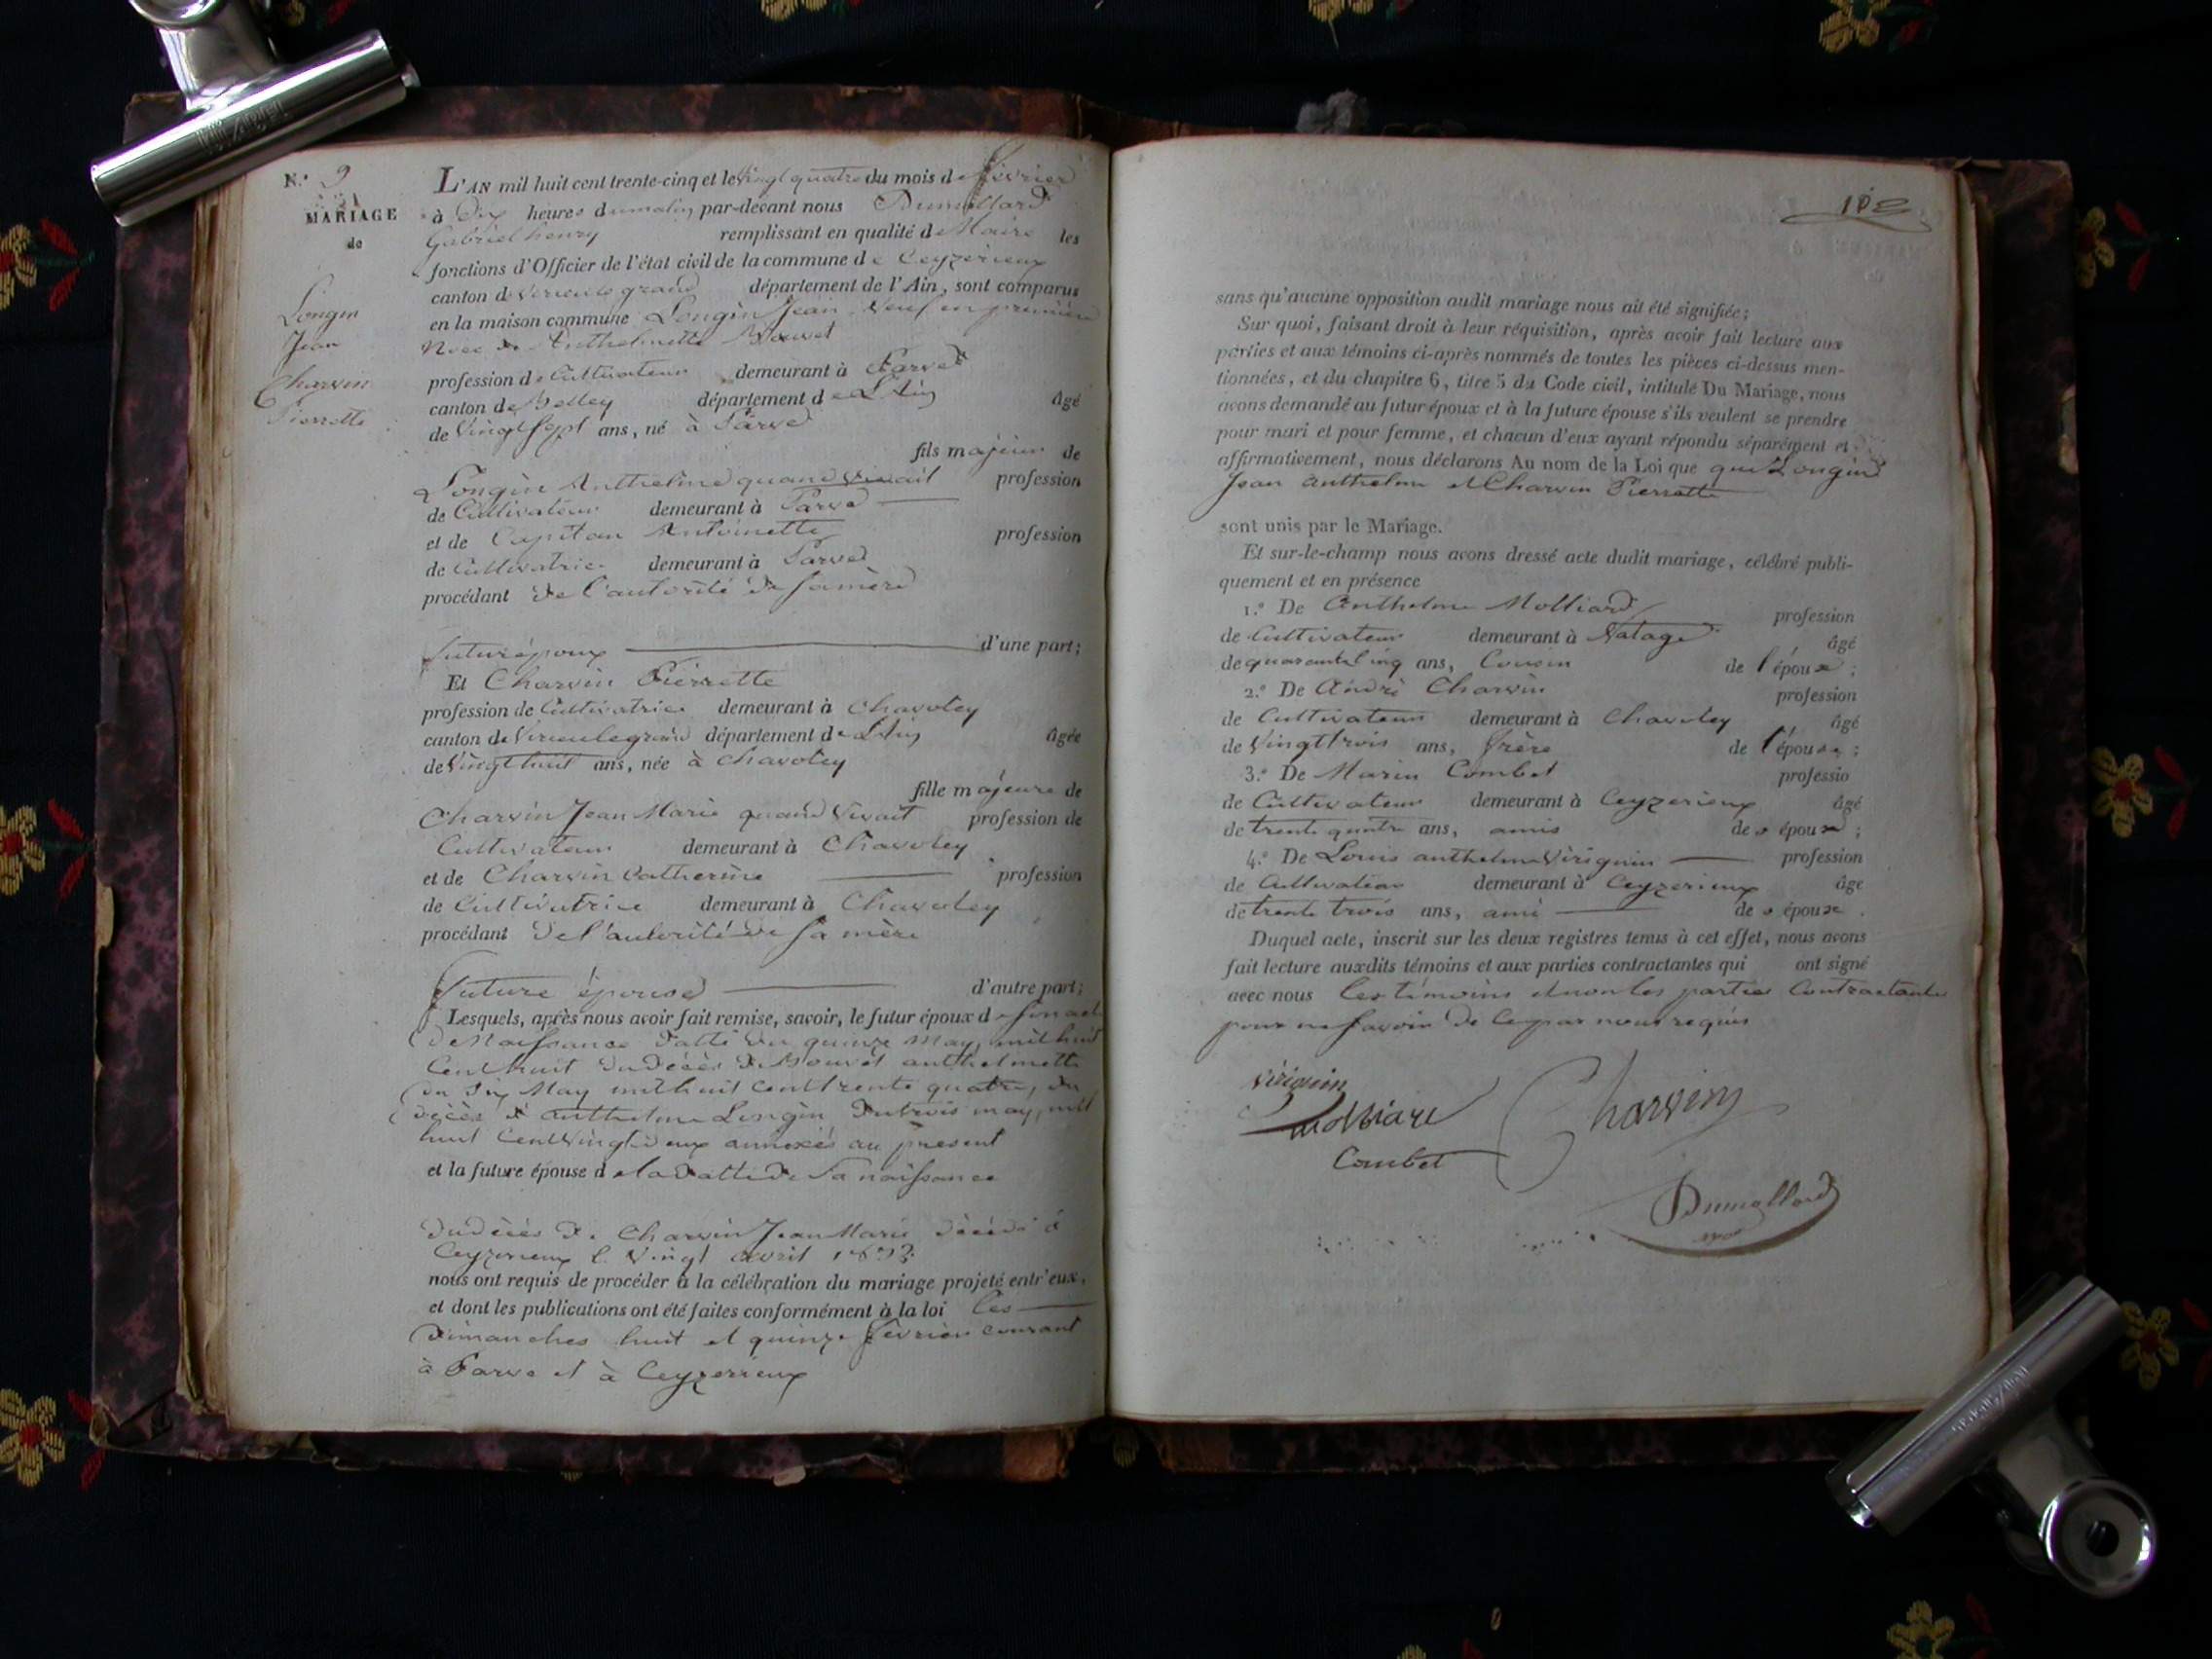 N.º 9
MARIAGE
de
Longin
Jean
Charvin
Pierrette
L'AN mil huit cent trente-cinq et le vingt quatre du mois de fevrier
à Dix heures du matin par-devant nous Dumollard
Gabriel henry remplissant en qualité de Maire les
fonctions d'Officier de l'état civil de la commune de Ceyzerieux
canton de Virieu le grand département de l'Ain, sont comparus
en la maison commune Longin Jean Veuf en première
Noce de Anthelmette Bouvet
profession de Cultivateur demeurant à Parve
canton de Belley département de L'Ain âgé
de Vingt Sept ans, né à Parve
fils majeur de
Longin Anthelme quand vivait profession
de Cultivateur demeurant à Parve
et de Capitan Antoinette profession
de Cultivatrice demeurant à Parve
procédant de l'autorité de sa mère
futur époux d'une part;
Et Charvin Pierrette
profession de Cultivatrice demeurant à Chavoley
canton de Virieu legrand département de L'Ain âgée
de Vingt huit ans, née à Chavoley
fille majeure de
Charvin Jean Marie quand Vivait profession de
Cultivateur demeurant à Chavoley
et de Charvin Catherine profession
de Cultivatrice demeurant à Chavoley
procédant de l'autorité de sa mère
future épouse d'autre part;
Lesquels, après nous avoir fait remise, savoir, le futur époux de son acte
de Naissance datté du quinze May, mil huit
Cent huit du Décès de Bouvet anthelmette
du Dix May mil huit cent trente quatre, du
décès d'anthelme Longin du trois may, mil
huit Cent Vingt Deux annexés au present
et la future épouse de la datte de Sa naissance
du décès de Charvin Jean Marie décédé à
Ceyzerieux le Vingt avril
nous ont requis de procéder à la célébration du mariage projeté entr'eux,
et dont les publications ont été faites conformément à la loi les
Dimanches huit et quinze fevrier courant
à Parve et à Ceyzerieux
102
sans qu'aucune opposition audit mariage nous ait été signifiée;
Sur quoi, faisant droit à leur réquisition, après avoir fait lecture aux
parties et aux témoins ci-après nommés de toutes les pièces ci-dessus men-
tionnées, et du chapitre 6, titre 5 du Code civil, intitulé Du Mariage, nous
avons demandé au futur époux et à la future épouse s'ils veulent se prendre
pour mari et pour femme, et chacun d'eux ayant répondu séparément et
affirmativement, nous déclarons Au nom de la Loi que que Longin
Jean Anthelme et Charvin Pierrette
sont unis par le Mariage.
Et sur-le-champ nous avons dressé acte dudit mariage, célébré publi-
quement et en présence
1.º De Anthelme Molliard profession
de Cultivateur demeurant à Natage âgé
de quarante cinq ans, Cousin de l'époux;
2.º De André Charvin profession
de Cultivateur demeurant à Chavoley âgé
de Vingt trois ans, frère de l'épouse;
3.º De Marin Combet professio
de Cultivateur demeurant à Ceyzerieux âgé
de trente quatre ans, amis des époux;
4.º De Louis anthelme Virignin profession
de Cultivateur demeurant à Ceyzerieux âge
de trente trois ans, ami des époux.
Duquel acte, inscrit sur les deux registres tenus à cet effet, nous avons
fait lecture auxdits témoins et aux parties contractantes qui ont signé
avec nous les témoins et non les parties Contractantes
pour ne savoir de Ce par nous requis
Virignin
Molliard
Charvin
Combet
Dumollard